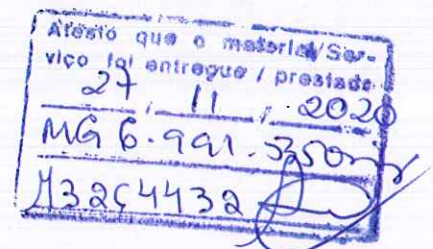 Atesto que o material/Ser-
viço foi entregue / prestado
27 / 11 / 2020
MG 6.991.350